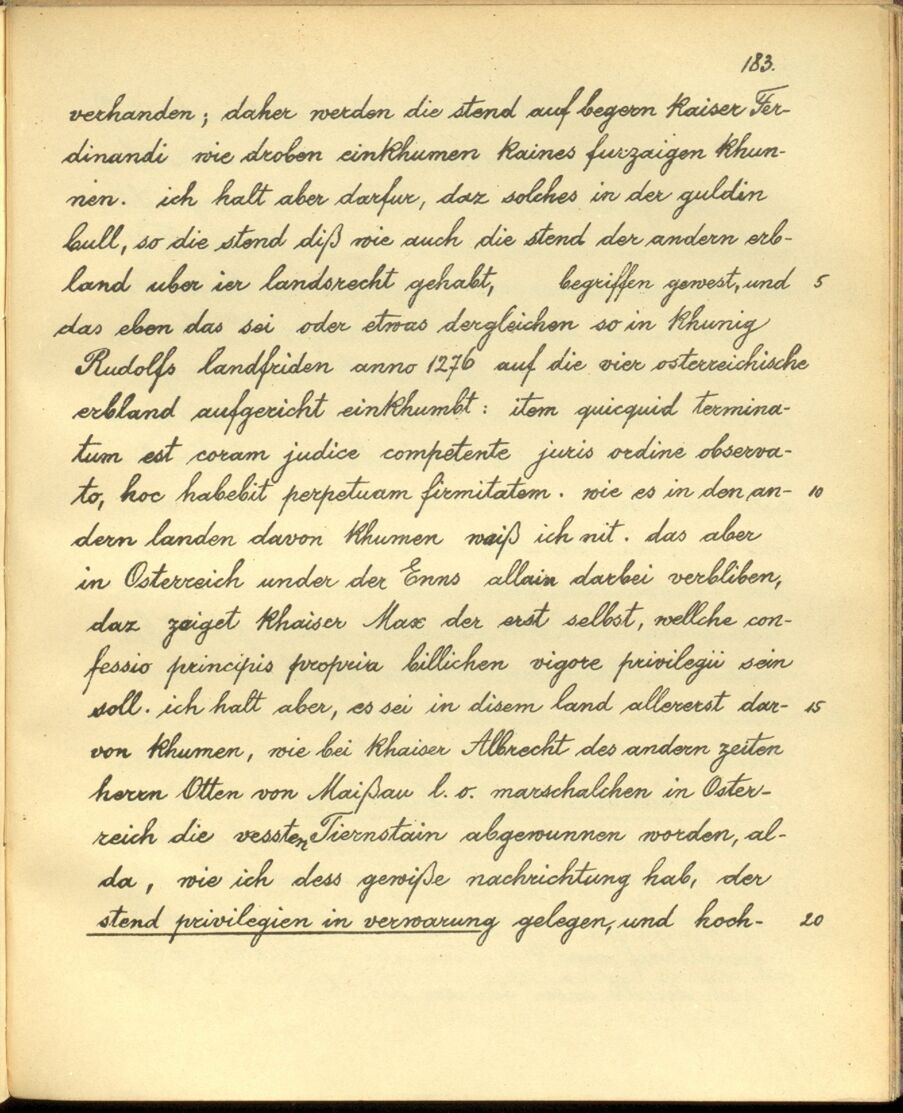 183.
verhanden; daher werden die stend auf begern Kaiser Fer-
dinandi wie droben einkhumen kaines furzaigen khun-
nen. ich halt aber darfur, daz solches in der guldin
bull, so die stend diß wie auch die stend der andern erb-
land uber ier landsrecht gehabt, begriffen gewest, und 5
das eben das sei oder etwas dergleichen so in Khunig
Rudolfs landfriden anno 1276 auf die vier osterreichische
erbland aufgericht einkhumbt: item quicquid termina-
tum est coram judice competente juris ordine observa-
to, hoc habebit perpetuam firmitatem. wie es in den an- 10
dern landen davon khumen waiß ich nit. das aber
in Osterreich under der Enns allain darbei verbliben,
daz zaiget Khaiser Max der erst selbst, wellche con-
fessio principis propria billichen vigore privilegii sein
soll. ich halt aber, es sei in disem land allererst dar- 15
von khumen, wie bei Khaiser Albrecht des andern zeiten
herrn Otten von Maißau l. o. marschalchen in Oster-
reich die vessten Tiernstain abgewunnen worden, al-
da, wie ich dess gewiße nachrichtung hab, der
stend privilegien in verwarung gelegen, und hoch- 20